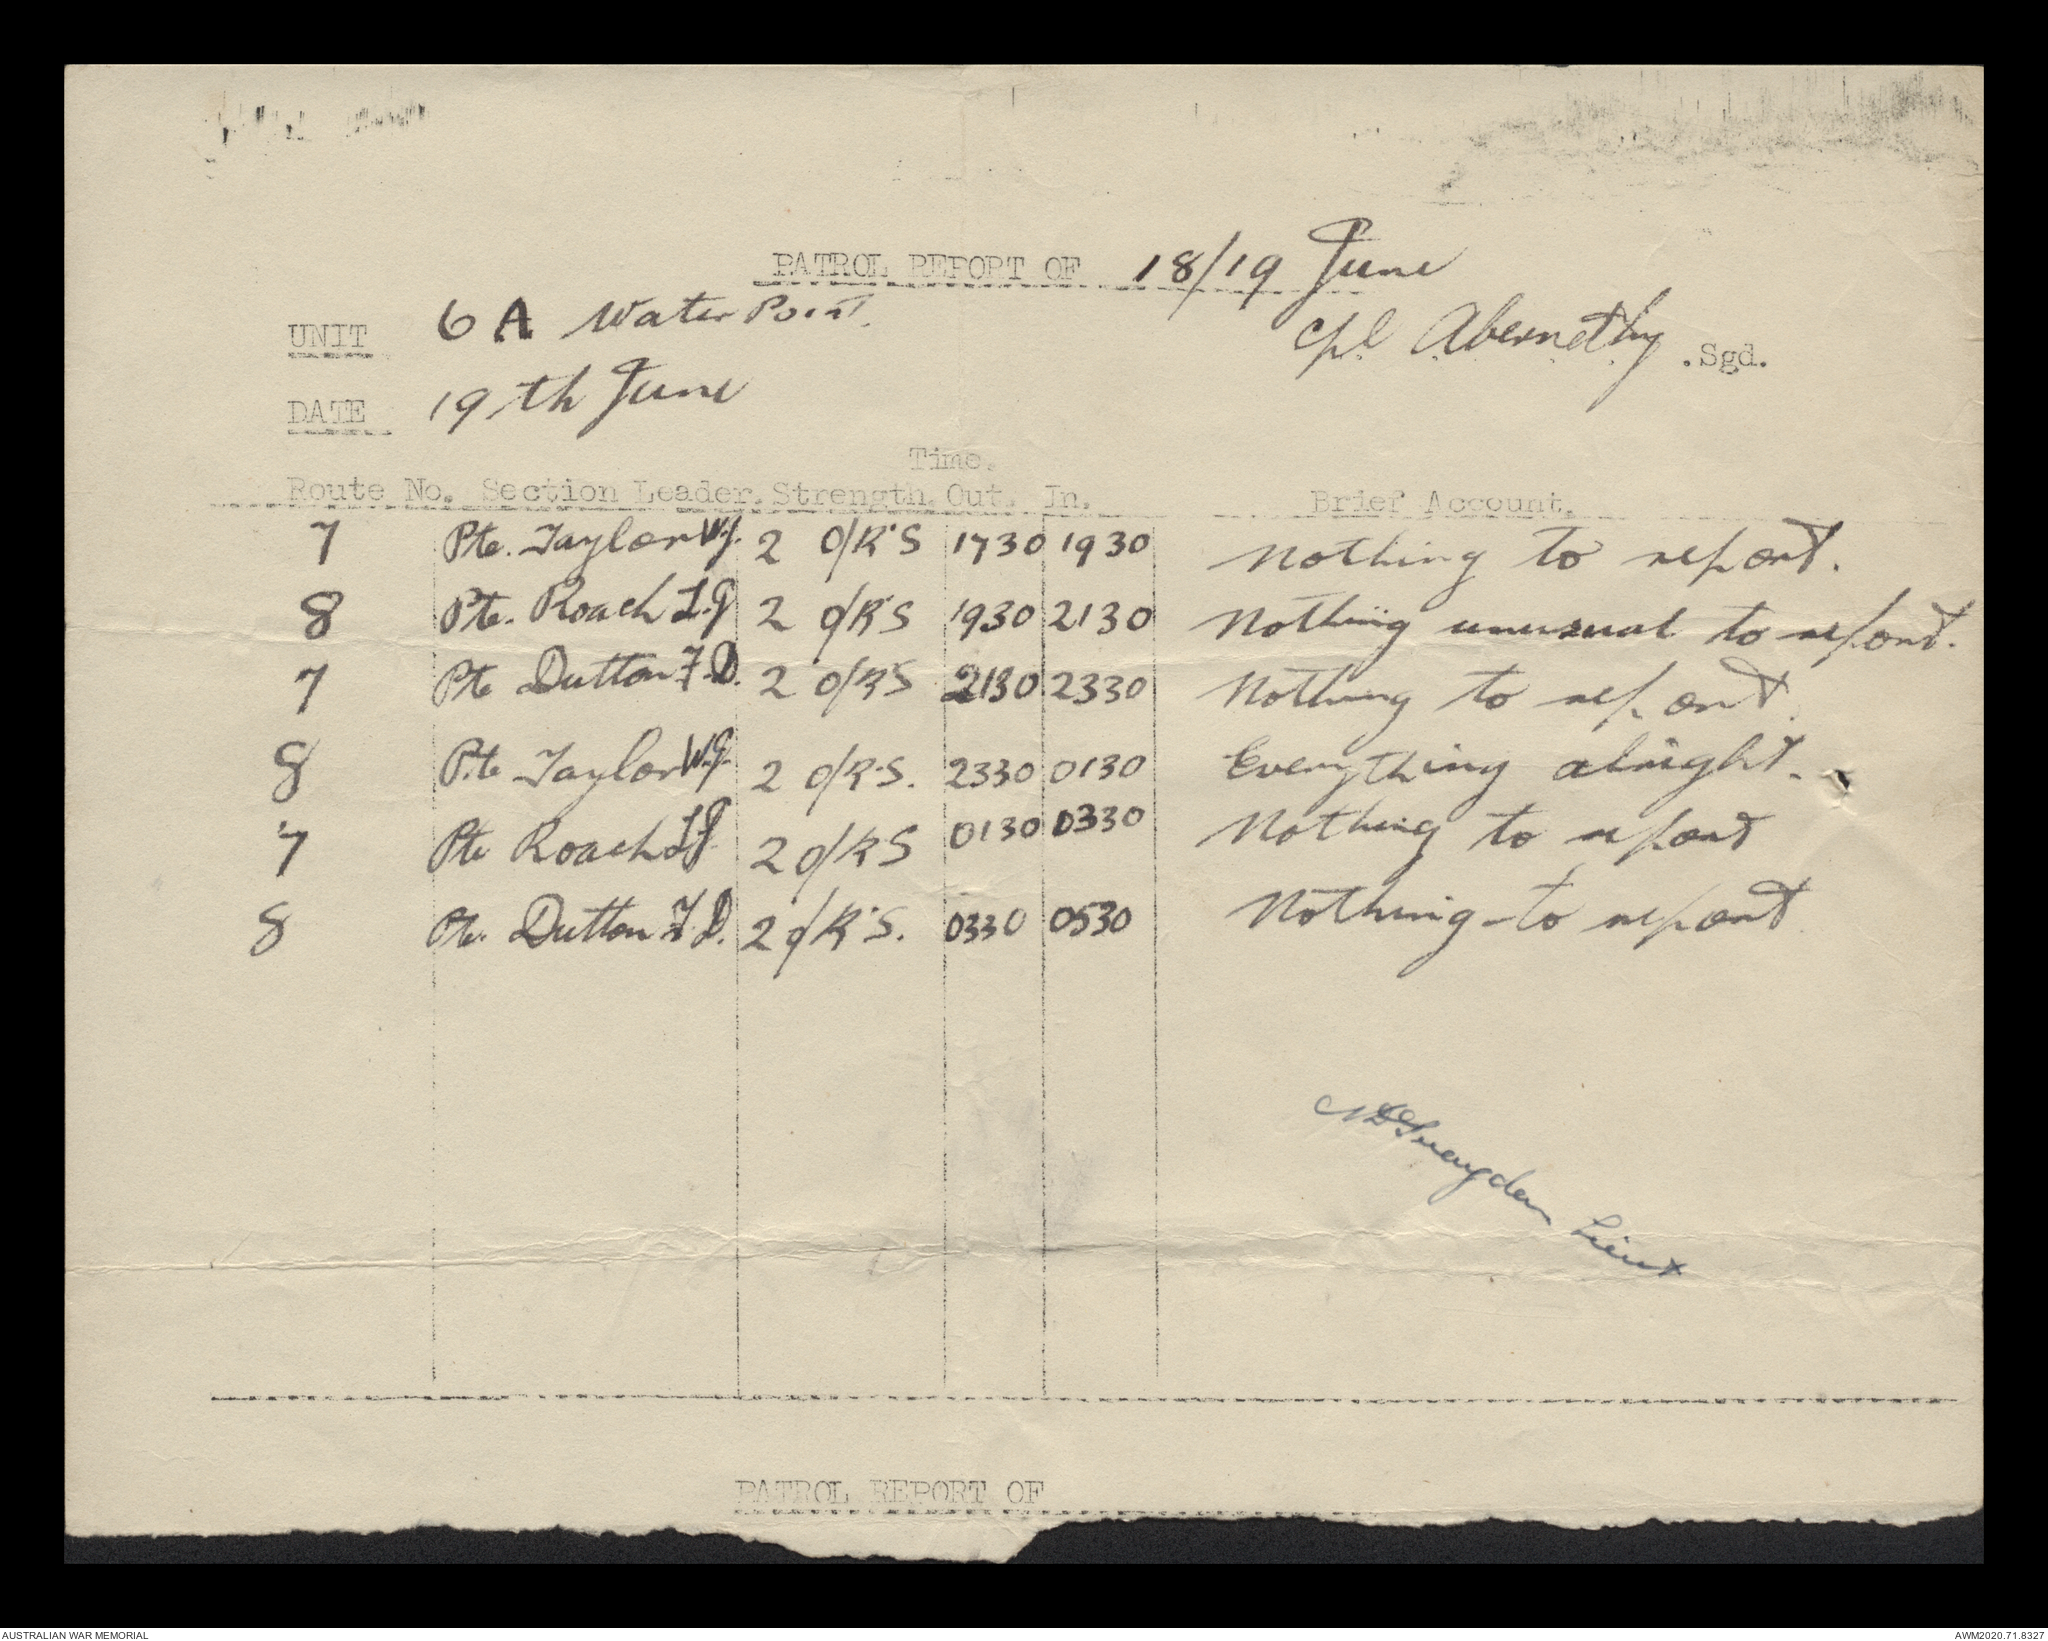 PATROL REPORT OF 18/19 June
UNIT 6 A Water Point.
Cpl Abernethy .Sgd.
DATE 19th June
Time.
Route No. Section Leader. Strength. Out. In. Brief Account.
7 Pte. Taylor W.J. 2 O/R'S 1730 1930 Nothing to report.
8 Pte. Roach L.J 2 O/R'S 1930 2130 Nothing unusual to report.
7 Pte Dutton F.D. 2 O/R'S 2130 2330 Nothing to report.
8 Pte Taylor W.J. 2 O/R'S. 2330 0130 Everything alright.
7 Pte Roach L.J 2 O/R'S 0130 0330 Nothing to report
8 Pte. Dutton F.D. 2 O/R'S. 0330 0530 Nothing to report
Lieut
PATROL REPORT OF
AUSTRALIAN WAR MEMORIAL AWM2020.71.8327